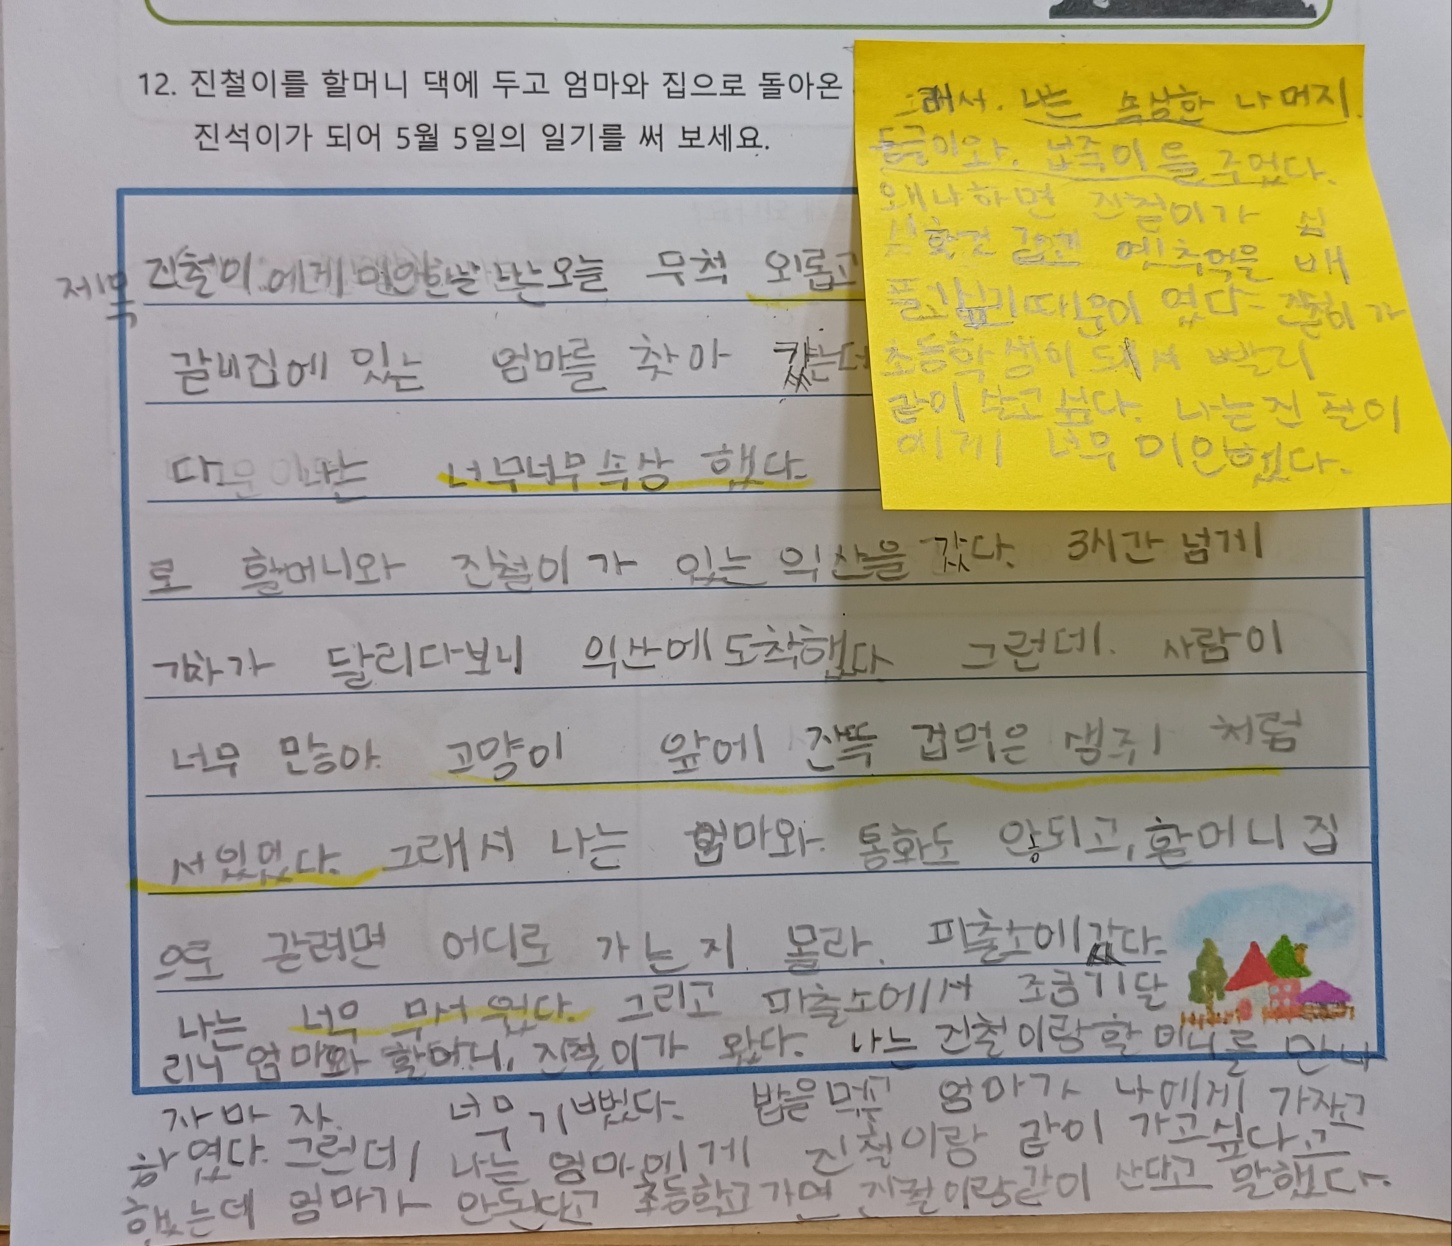 12. 진철이를 할머니 댁에 두고 엄마와 집으로 돌아온
진석이가 되어 5월 5일의 일기를 써 보세요.
제목 진철이에게 미안한날 나는오늘 무척 외롭고
갈비집에 있는 엄마를 찾아 갔는데
다음 나는 너무너무속상 했다
로 할머니와 진철이가 있는 익산을 갔다. 3시간 넘게
기차가 달리다보니 익산에도착했다 그런데. 사람이
너무 많아. 고양이 앞에 잔뜩 겁먹은 생쥐 처럼
서있었다. 그래서 나는 엄마와 통화도 않되고, 할머니 집
으로 갈려면 어디로 가는지 몰라. 파출소에갔다.
나는 너무 무서웠다. 그리고 파출소에서 조금기달
리니 엄마와 할머니, 진철이가 왔다. 나는 진철이랑할머니를 만나
자마자. 너무기뻤다. 밥을먹고 엄마가 나에게 가자고
하였다. 그런데 나는 엄마에게 진철이랑 같이 가고싶다고
했는데 엄마가 안된다고 초등학교가면 진철이랑같이 산다고 말했다.
그래서. 나는 속상한 나머지.
동글이와. 납죽이를 주었다.
왜냐하면 진철이가
옛추억을 배
초등학생이 되서 빨리
같이 살고 싶다. 나는진철이
에게 너무 미안했다.